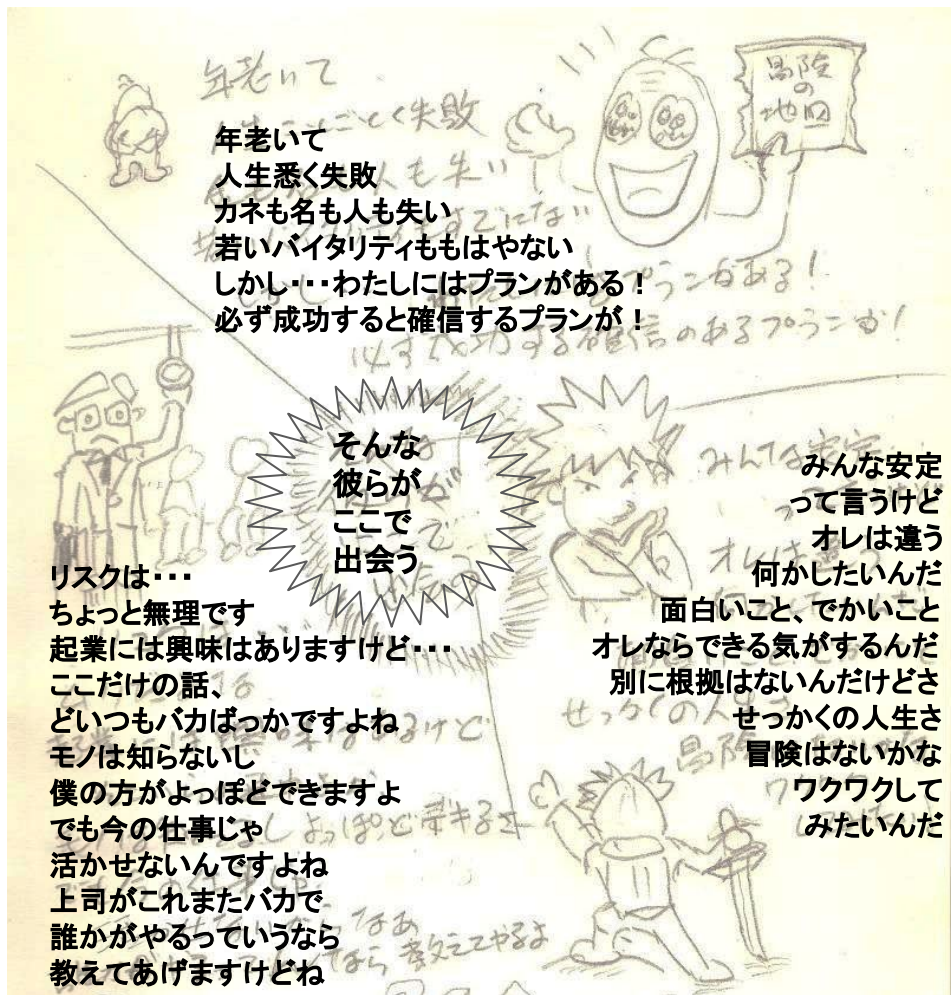 冒険
の
地図
年老いて
年老いて
人生悉く失敗
カネも名も人も失い
若いバイタリティももはやない
しかし・・・わたしにはプランがある！
必ず成功すると確信するプランが！
必ず成功する確信のあるプランが！
そんな
彼らが
ここで
出会う
みんな安定
って言うけど
オレは違う
何かしたいんだ
面白いこと、でかいこと
オレならできる気がするんだ
別に根拠はないんだけどさ
せっかくの人生さ
冒険はないかな
ワクワクして
みたいんだ
リスクは・・・
ちょっと無理です
起業には興味はありますけど・・・
ここだけの話、
どいつもバカばっかですよね
モノは知らないし
僕の方がよっぽどできますよ
でも今の仕事じゃ
活かせないんですよね
上司がこれまたバカで
誰かがやるっていうなら
教えてあげますけどね